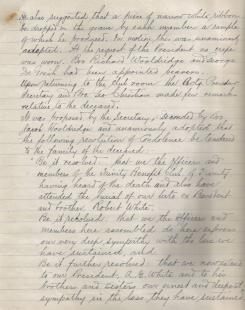 He also suggested that a piece of narrow white ribbon
be dropped in the grave by each member a sample
of which he produced. On motion this was unanimously
adopted. At the request of the President no crepe
was worn. Bro Richard Wooldridge and George
had been appointed
Upon returning to the Club room the President
Secretary and Bro. Christian made few remarks
relative to the deceased.
It was proposed by the Secretary, seconded by Bro
Wooldridge and unanimously adopted that
the following resolution of Condolence be tendered
to the family of the deceased.
Be it resolved: that we the Officers and
members of the Benefit Club of
having heard of the death and also have
attended the burial of our late ex President
and brother Robert White.
Be it resolved: that we the Officers and
members here assembled do here express
our very deep sympathy with the loss we
have sustained, and
Be it further resolved: that we now
to our President, A. G. White and to his
brothers and sisters our earnest and deepest
sympathy in the loss they have sustained